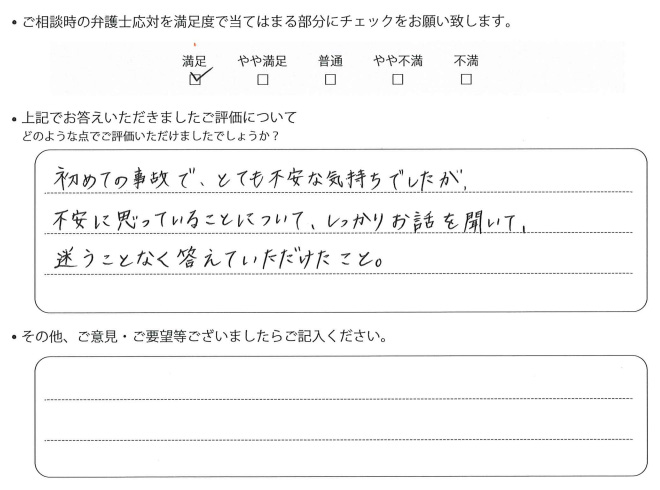 • ご相談時の弁護士応対を満足度で当てはまる部分にチェックをお願い致します。
満足 やや満足 普通 やや不満 不満
☑ □ □ □ □
• 上記でお答えいただきましたご評価について
どのような点でご評価いただけましたでしょうか?
初めての事故で、とても不安な気持ちでしたが、
不安に思っていることについて、しっかりお話を聞いて、
迷うことなく答えていただけたこと。
• その他、ご意見・ご要望等ございましたらご記入ください。